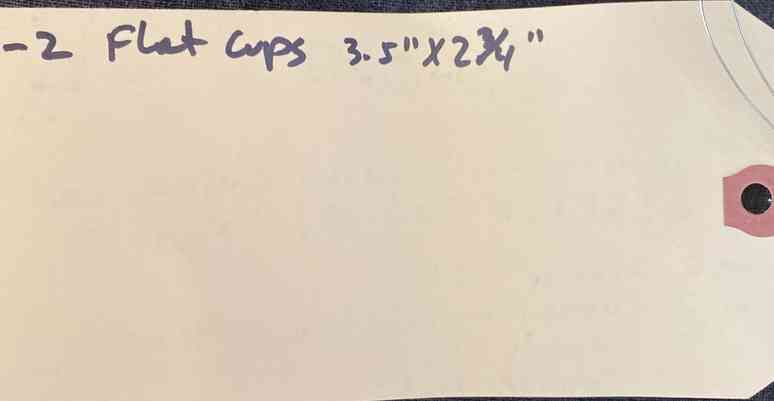 -2 Flat Cups 3.5" X 2 3/4"